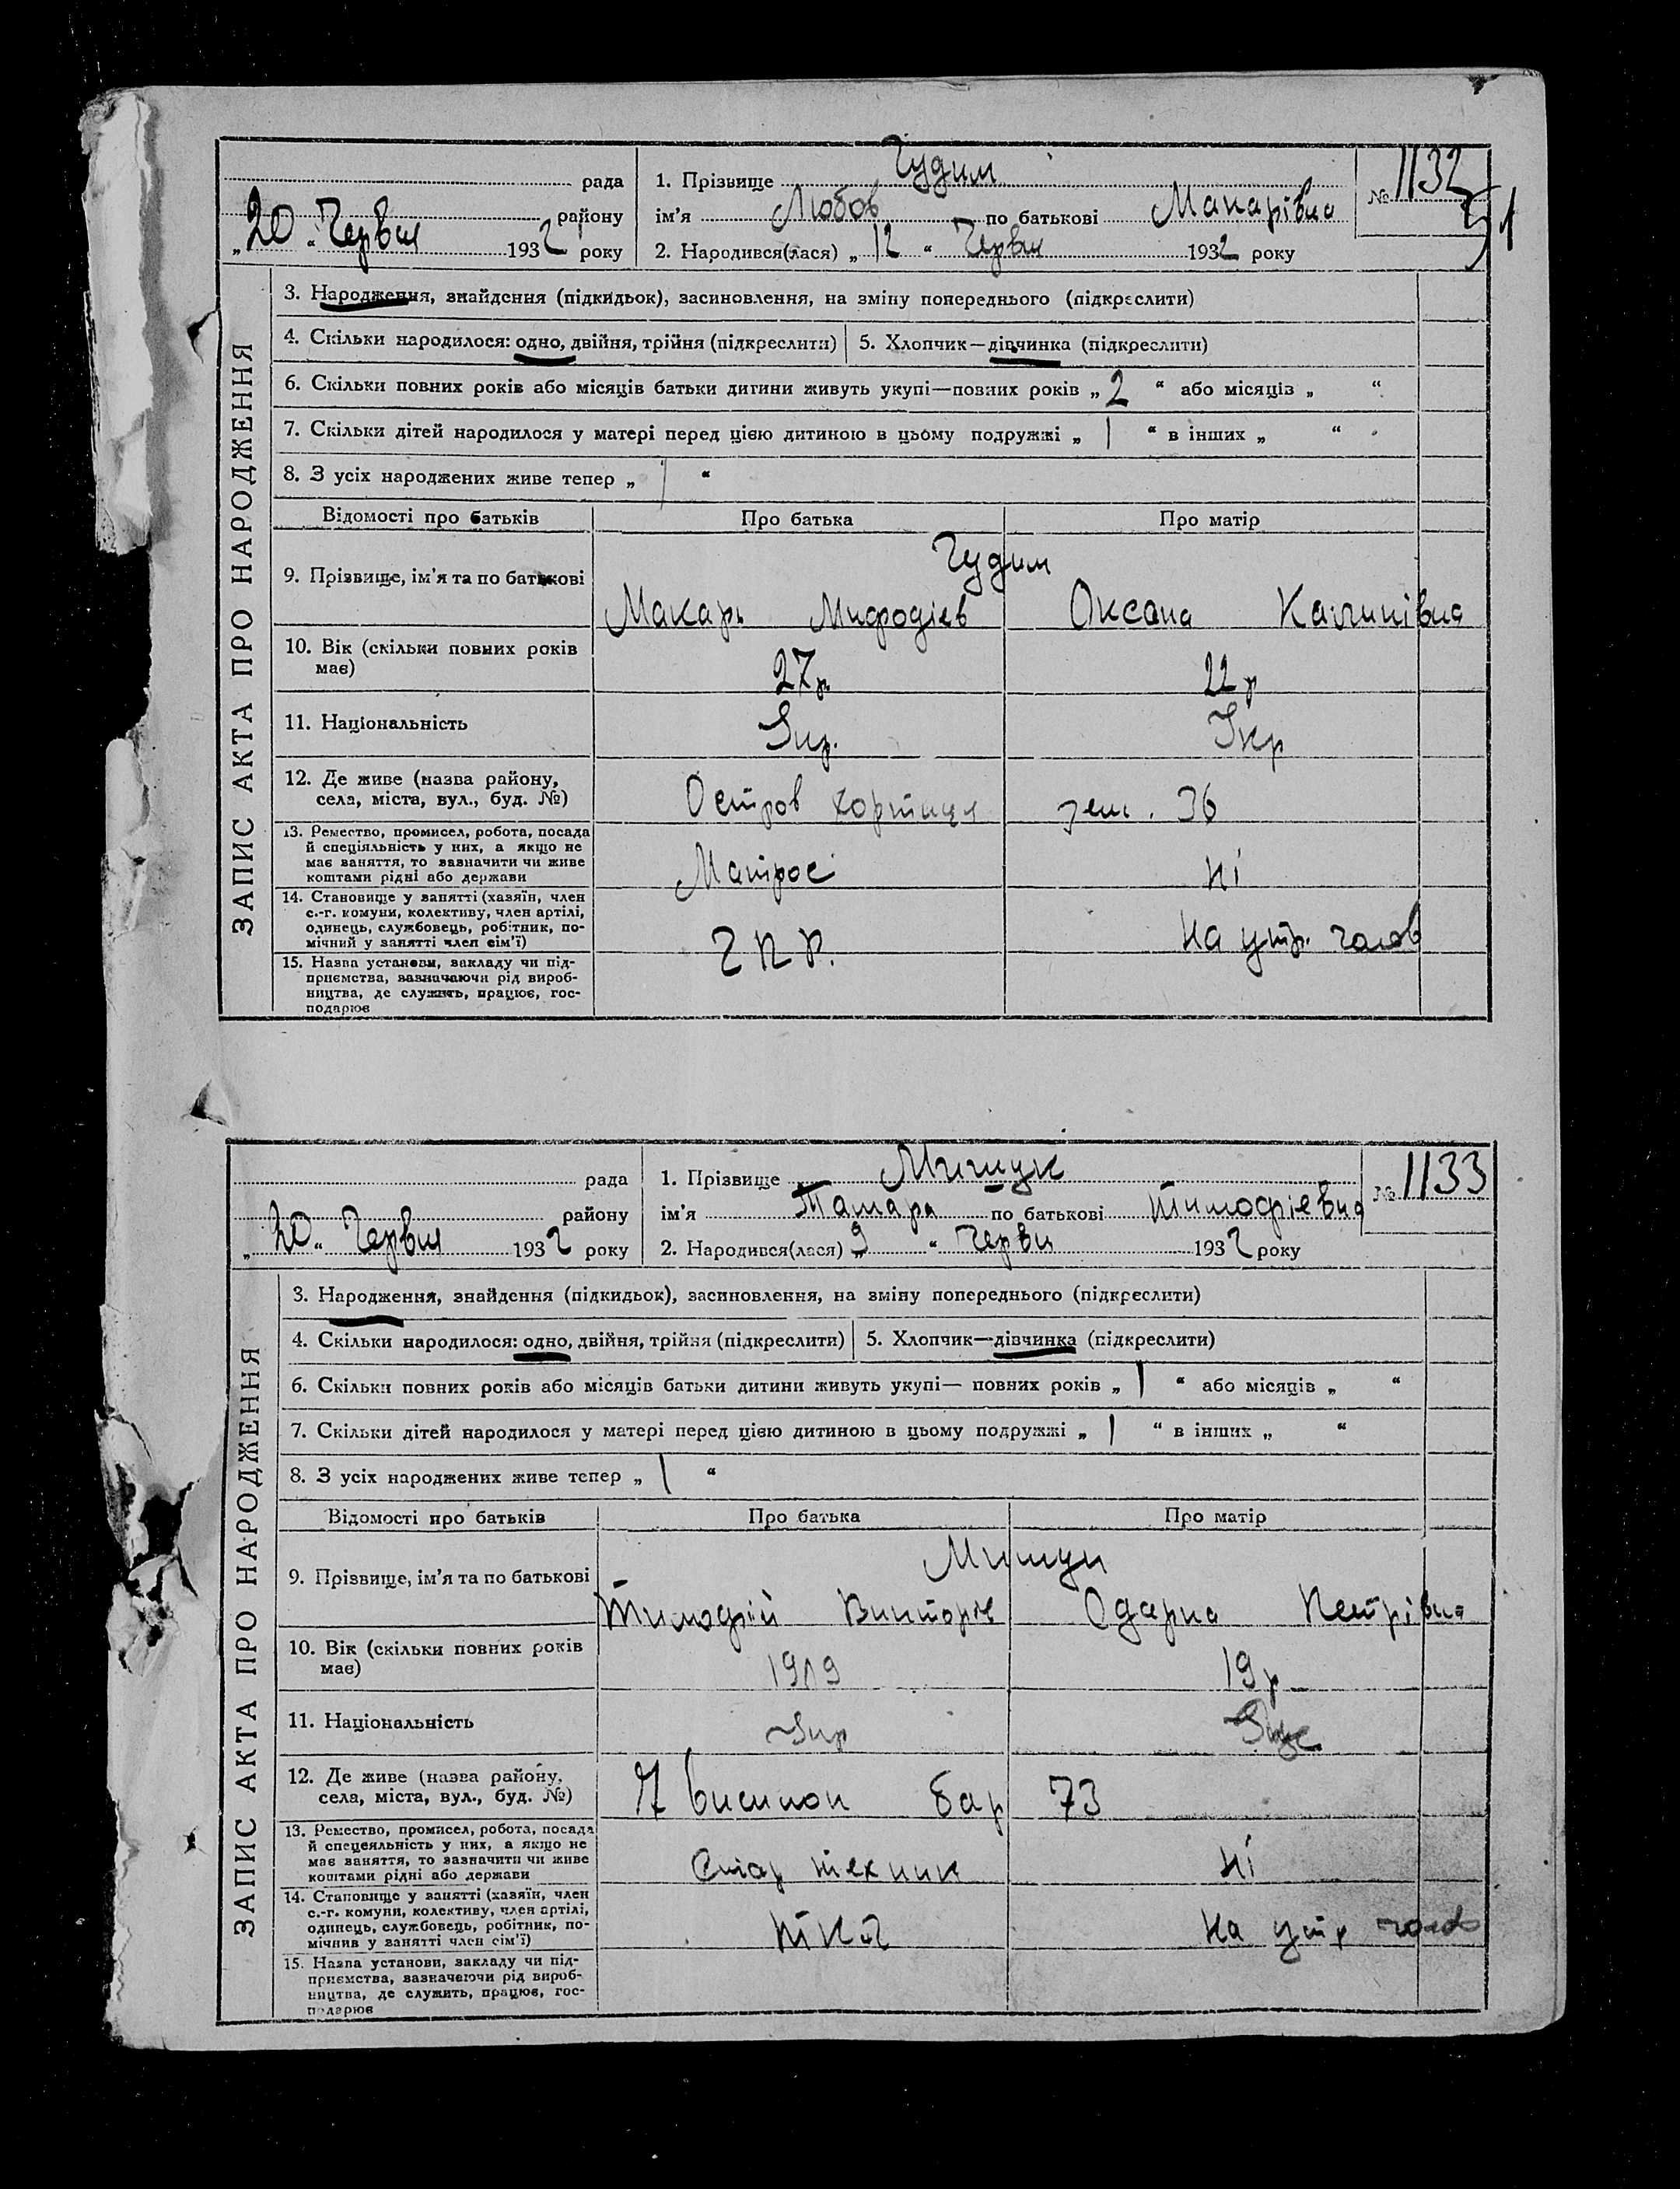 Чудим № 1132
рада 1. Прізвище
району ім'я Любов по батькові Макарівна 51
„20" Червня 1932 року 2. Народився(лася) „12" Червня 1932 року
ЗАПИС АКТА ПРО НАРОДЖЕННЯ
3. Народження, знайдення (підкидьок), засиновлення, на зміну попереднього (підкреслити)
4. Скільки народилося: одно, двійня, трійня (підкреслити) 5. Хлопчик—дівчинка (підкреслити)
6. Скільки повних років або місяців батьки дитини живуть укупі—повних років „2" або місяців „ "
7. Скільки дітей народилося у матері перед цією дитиною в цьому подружжі „1" в інших „ "
8. З усіх народжених живе тепер „1"
Відомості про батьків Про батька Про матір
Чудим
9. Прізвище, ім'я та по батькові Макарь Мифодіев Оксана Калинівна
10. Вік (скільки повних років 27р. 22р
має)
11. Національність Укр. Укр
12. Де живе (назва району, Остров Хортиця зем. 36
села, міста, вул., буд. №)
13. Ремество, промисел, робота, посада
й спеціяльність у них, а якщо не
має заняття, то зазначити чи живе Матрос ні
коштами рідні або держави
14. Становище у занятті (хазяїн, член
с.-г. комуни, колективу, член артілі,
одинець, службовець, робітник, по- на утр. чолов
мічний у занятті член сім'ї)
15. Назва установи, закладу чи під-
приємства, зазначаючи рід вироб-
ництва, де служить, працює, гос-
подарює
Мищук № 1133
рада 1. Прізвище
району ім'я Тамара по батькові Тимофіевна
„20" Червня 1932 року 2. Народився(лася) „9" Червня 1932 року
ЗАПИС АКТА ПРО НАРОДЖЕННЯ
3. Народження, знайдення (підкидьок), засиновлення, на зміну попереднього (підкреслити)
4. Скільки народилося: одно, двійня, трійня (підкреслити) 5. Хлопчик—дівчинка (підкреслити)
6. Скільки повних років або місяців батьки дитини живуть укупі— повних років „1" або місяців „ "
7. Скільки дітей народилося у матері перед цією дитиною в цьому подружжі „1" в інших „ "
8. З усіх народжених живе тепер „1"
Відомості про батьків Про батька Про матір
Мищук
9. Прізвище, ім'я та по батькові Тимофій Викторів Одарка Петрівна
10. Вік (скільки повних років 1909 19р
має)
11. Національність Укр
12. Де живе (назва району, бар 73
села, міста, вул., буд. №)
13. Ремество, промисел, робота, посада
й спецеяльність у них, а якщо не
має заняття, то зазначити чи живе Стар техник ні
коштами рідні або держави
14. Становище у занятті (хазяїн, член
с.-г. комуни, колективу, член артілі,
одинець, службовець, робітник, по- на утр чолов
мічния у занятті член сім'ї)
15. Назва установи, закладу чи під-
приємства, зазначаючи рід вироб-
ництва, де служить, працює, гос-
подарює